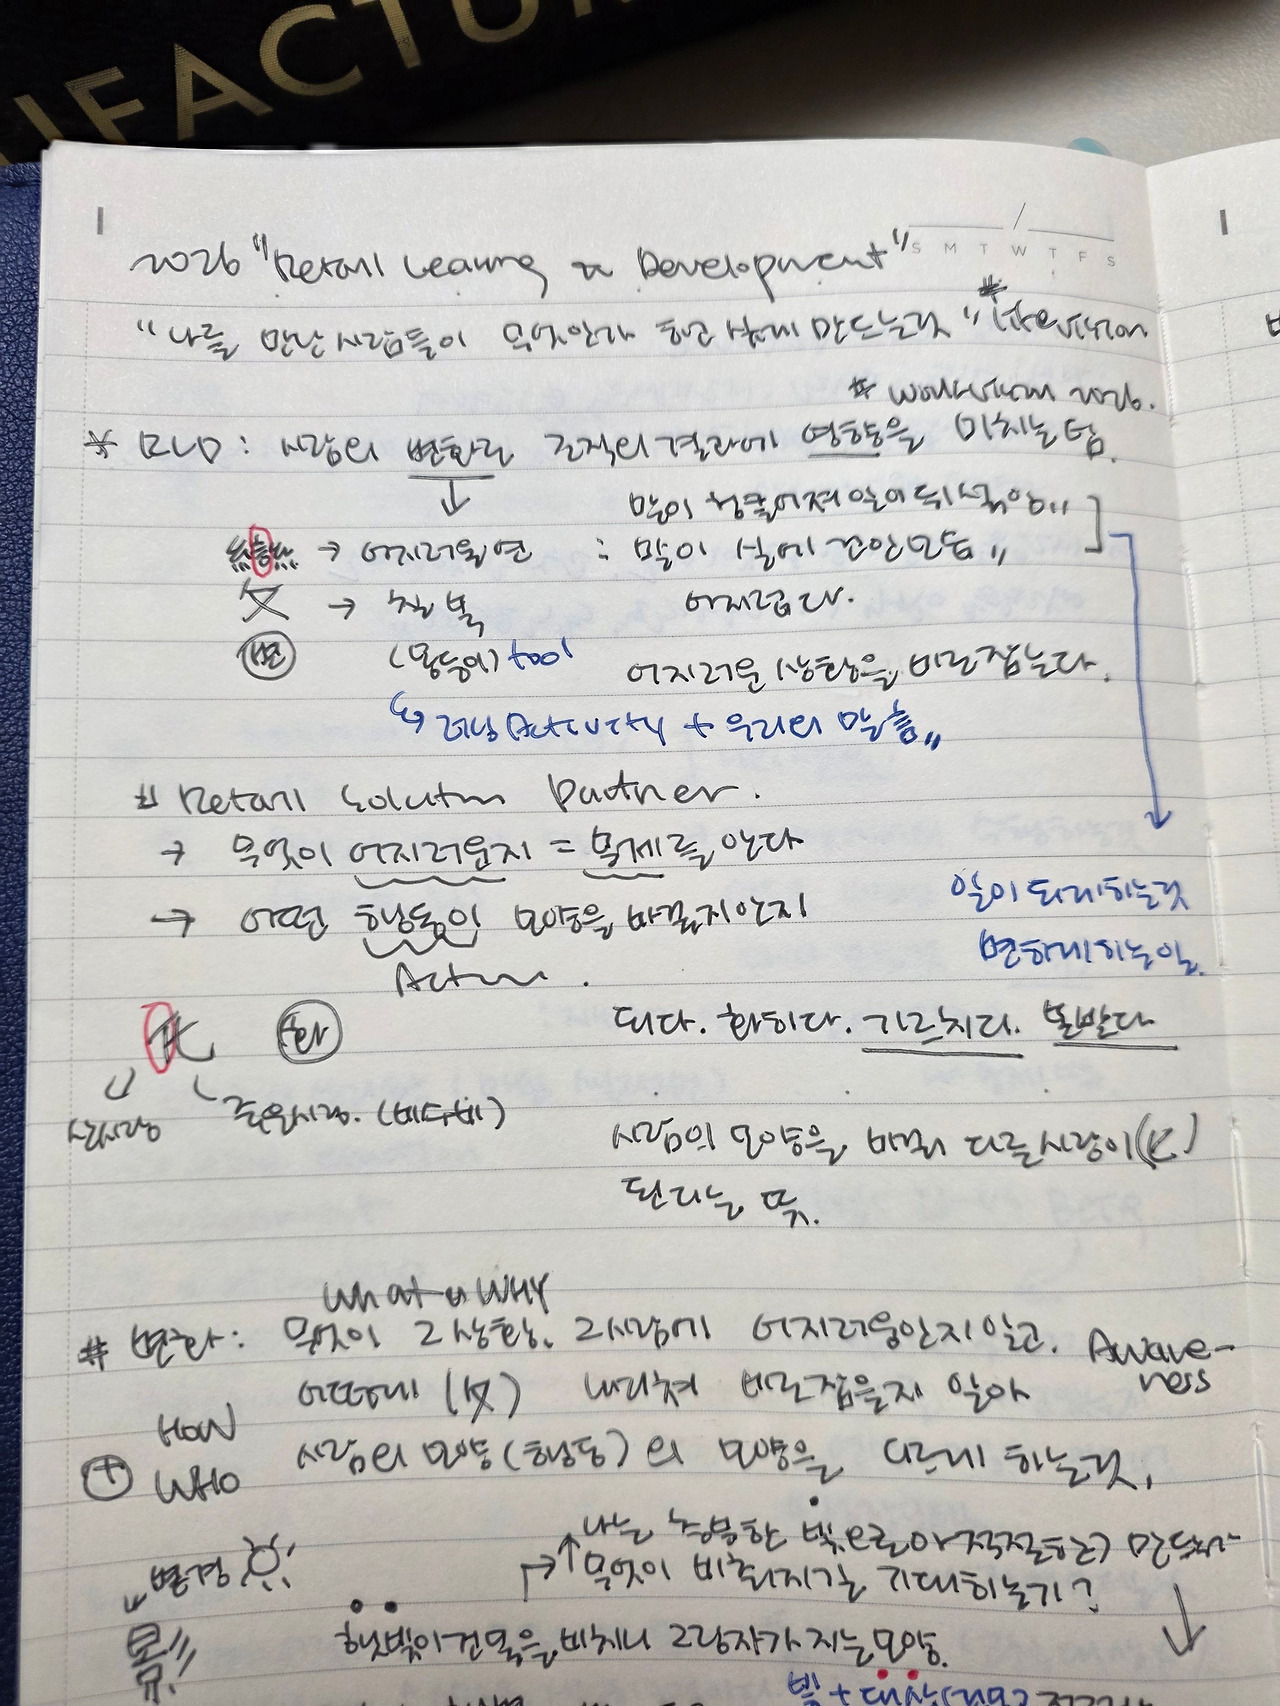 FACTUR
S M T W T F S
2026 "Retail Learning & Development"
"나를 만난 사람들이 무엇인가 하고 싶게 만드는것" #
# 2026.
* RLD : 사람의 변화로 조직의 결과에 영향을 미치는 팀.
말이 헝클어져 일이 뒤
→ 어지러울 변 : 말이 실에
攵 → 칠 복 어지럽다.
변 (몽둥이) tool 어지러운 상황을 바로잡는다.
↳ 러닝 Activity + 우리의 말들"
# Retail Solution Partner.
→ 무엇이 어지러운지 = 문제를 안다
→ 어떤 행동의 모양을 바꿀지 안지
일이 되게 하는것
Action.
변하게 하는 일.
化 화 되다. 화하다. 가르치다.
산사람 죽은사람.
사람의 모양을 바꿔 다른사람이(匕)
된다는 뜻.
What & WHY
# 변화 : 무엇이 그 상황, 그사람에 어지러움인지 알고. Aware-
어떻게 (攵) 내리쳐 바로잡을지 알아 ness
HOW
사람의 모양(행동)의 모양을 다르게 하는것.
+ WHO
나는 충분한 빛으로
변경 무엇이 비춰지기를 기대하는가?
햇빛이 건물을 비치니 그림자가 지는 모양.
빛 +